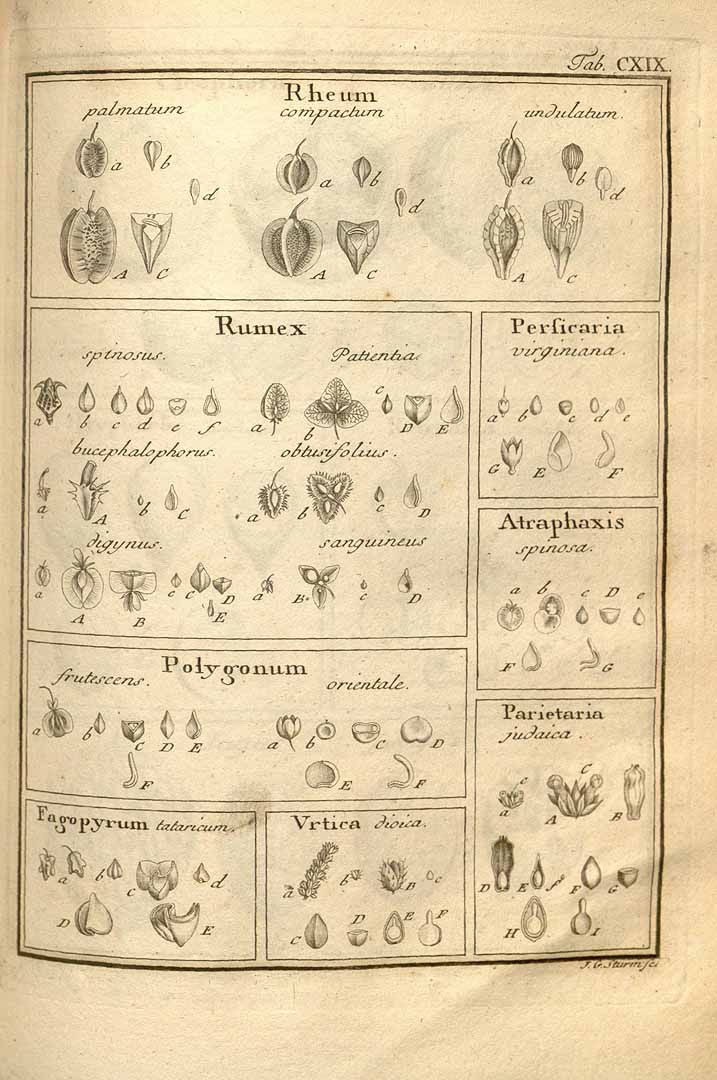 Tab. CXIX.
Rheum
palmatum compactum undulatum.
a b a b a b
d d d
A C A C A C
Rumex
spinosus. Patientia
a b c d e f a b c D E
bucephalophorus. obtusifolius.
a A b C a b c D
digynus. sanguineus
a A B c C D E a B c D
Persicaria
virginiana.
a b c d e
G E F
Atraphaxis
spinosa.
a b c D e
F G
Polygonum
frutescens. orientale.
a b C D E a b C D
F E F
Parietaria
judaica.
a c A C B
D E f F G
H I
Fagopyrum tataricum.
a b c d
D E
Vrtica dioica.
a b B c
C D E F
J. G. Sturm sc.